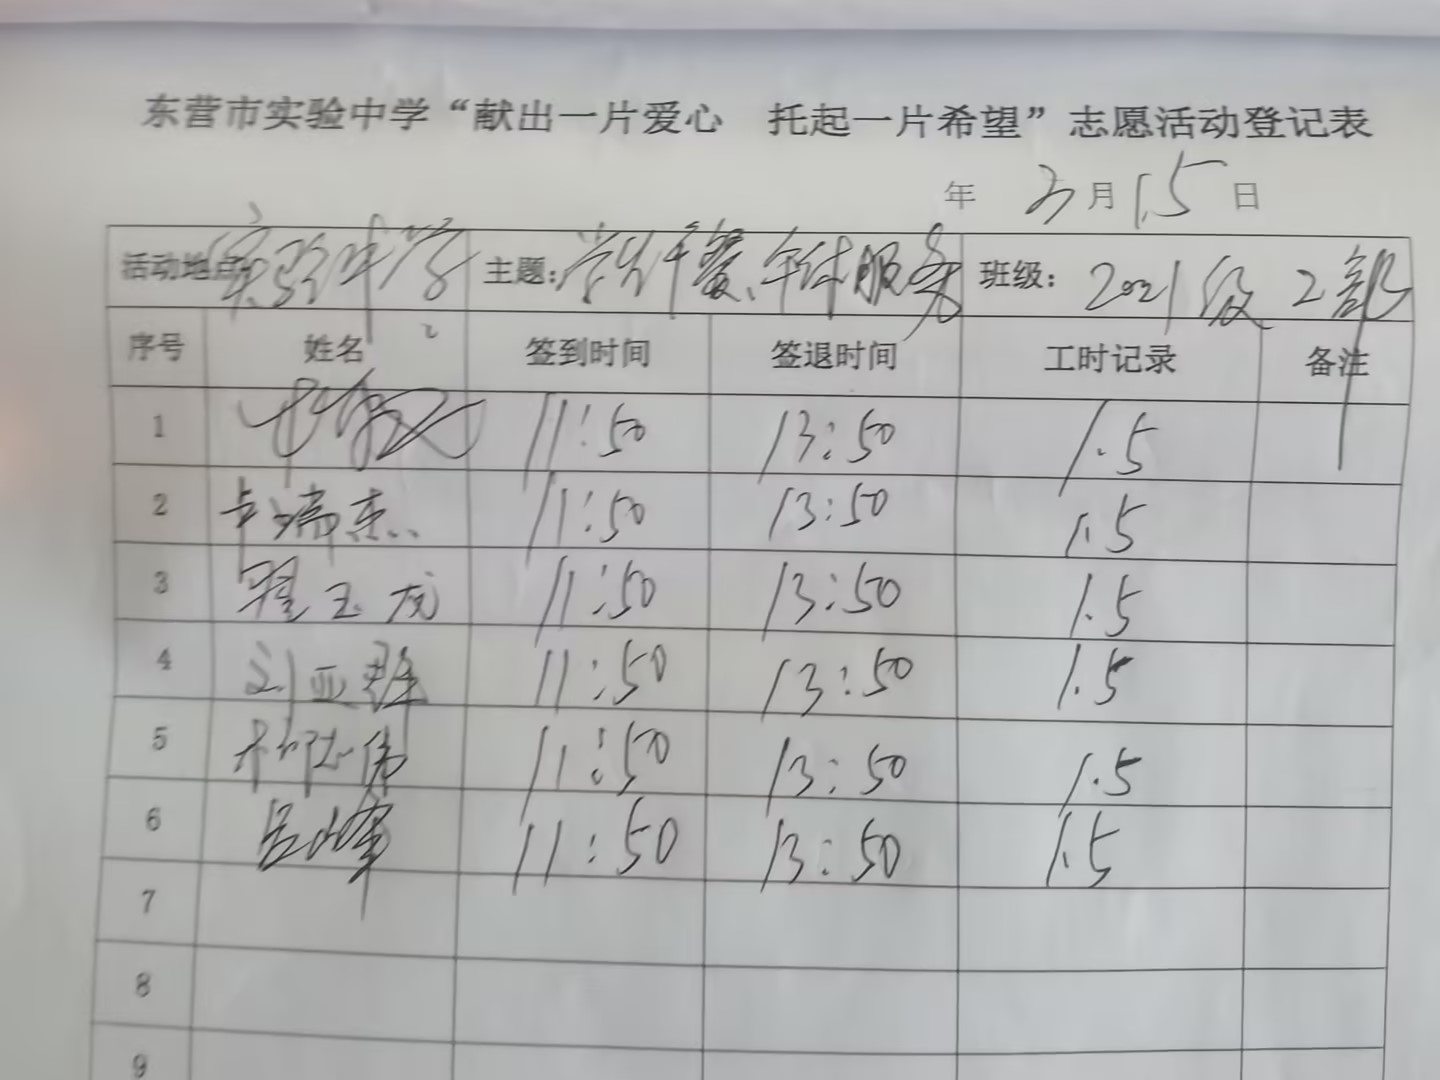 东营市实验中学“献出一片爱心 托起一片希望”志愿活动登记表
年 3月15日
活动地点 实验中学 主题:学生午餐、午休服务 班级: 2021级2部
序号 姓名 签到时间 签退时间 工时记录 备注
1 11:50 13:50 1.5
2 卞瑞杰 11:50 13:50 1.5
3 翟玉龙 11:50 13:50 1.5
4 刘亚群 11:50 13:50 1.5
5 11:50 13:50 1.5
6 吕峰 11:50 13:50 1.5
7
8
9